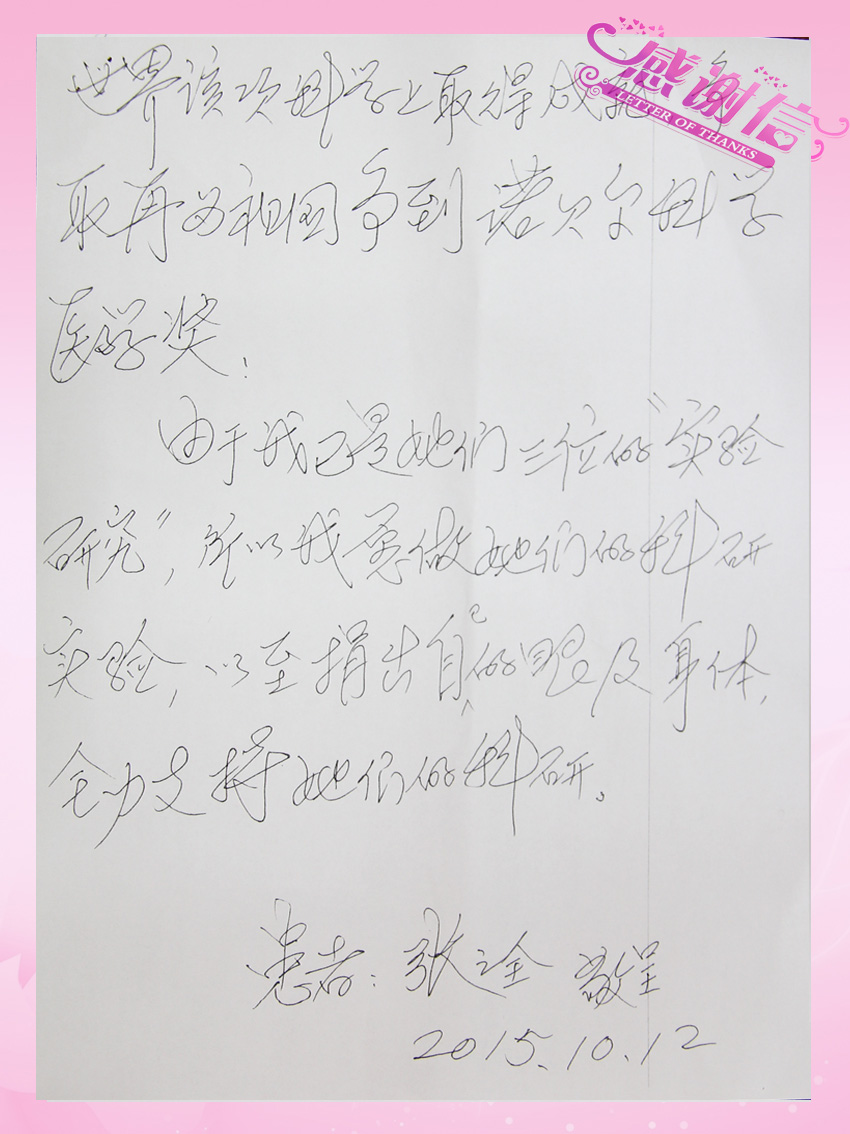 感谢信
LETTER OF THANKS
世界该项科学上取得成就,争
取再为祖国争到诺贝尔科学
医学奖.
由于我已是她们三位的“实验
研究”,所以我愿做她们的科研
实验,以至捐出自己的眼及身体,
全力支持她们的科研。
患者:张全 敬呈
2015.10.12